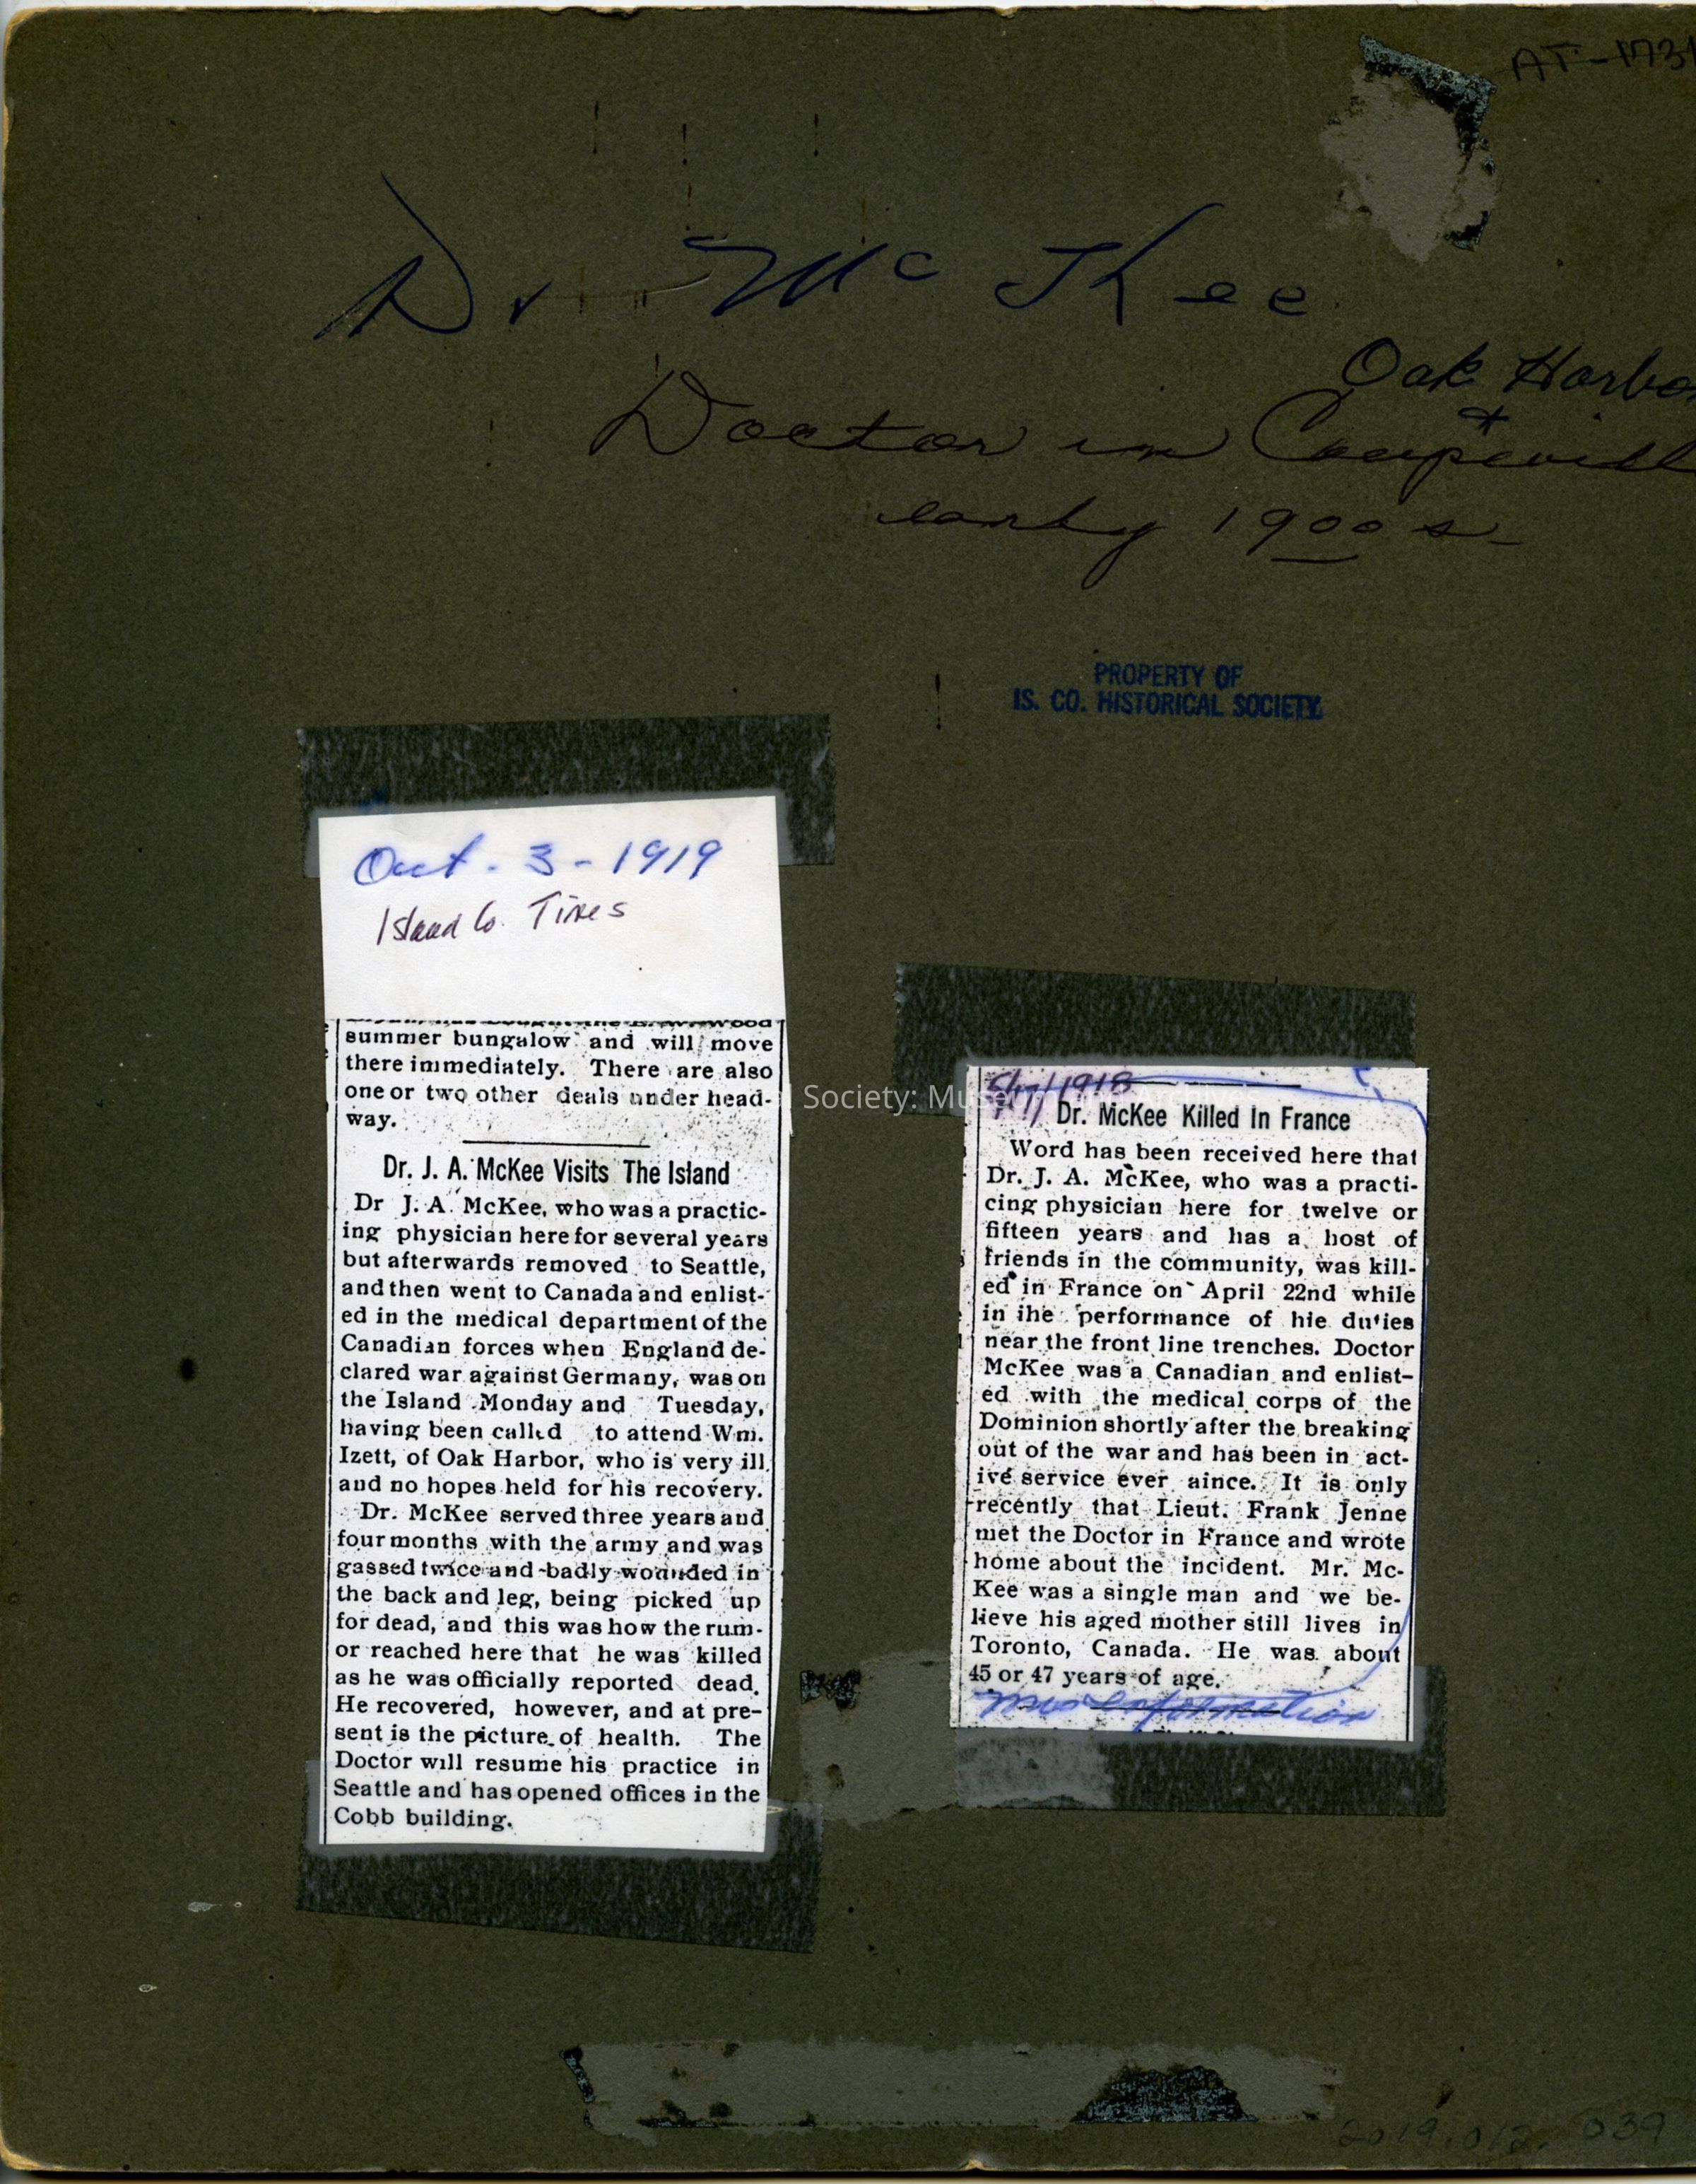 AT-1731
Dr Mc Kee
Oak Harbor
+
Doctor in Coupeville
early 1900s
PROPERTY OF
IS. CO. HISTORICAL SOCIETY
Oct. 3-1919
Island Co. Times
summer bungalow and will move
there immediately. There are also
one or two other deals under head-
way.
Dr. J. A. McKee Visits The Island
Dr J. A. McKee, who was a practic-
ing physician here for several years
but afterwards removed to Seattle,
and then went to Canada and enlist-
ed in the medical department of the
Canadian forces when England de-
clared war against Germany, was on
the Island Monday and Tuesday,
having been called to attend Wm.
Izett, of Oak Harbor, who is very ill
and no hopes held for his recovery.
Dr. McKee served three years and
four months with the army and was
gassed twice and badly wounded in
the back and leg, being picked up
for dead, and this was how the rum-
or reached here that he was killed
as he was officially reported dead.
He recovered, however, and at pre-
sent is the picture of health. The
Doctor will resume his practice in
Seattle and has opened offices in the
Cobb building.
Society: Museum and Archives
5/17/1918
Dr. McKee Killed In France
Word has been received here that
Dr. J. A. McKee, who was a practi-
cing physician here for twelve or
fifteen years and has a host of
friends in the community, was kill-
ed in France on April 22nd while
in ihe performance of hie duties
near the front line trenches. Doctor
McKee was a Canadian and enlist-
ed with the medical corps of the
Dominion shortly after the breaking
out of the war and has been in act-
ive service ever aince. It is only
recently that Lieut. Frank Jenne
met the Doctor in France and wrote
home about the incident. Mr. Mc-
Kee was a single man and we be-
lieve his aged mother still lives in
Toronto, Canada. He was about
45 or 47 years of age.
misinformation
2019.012.039